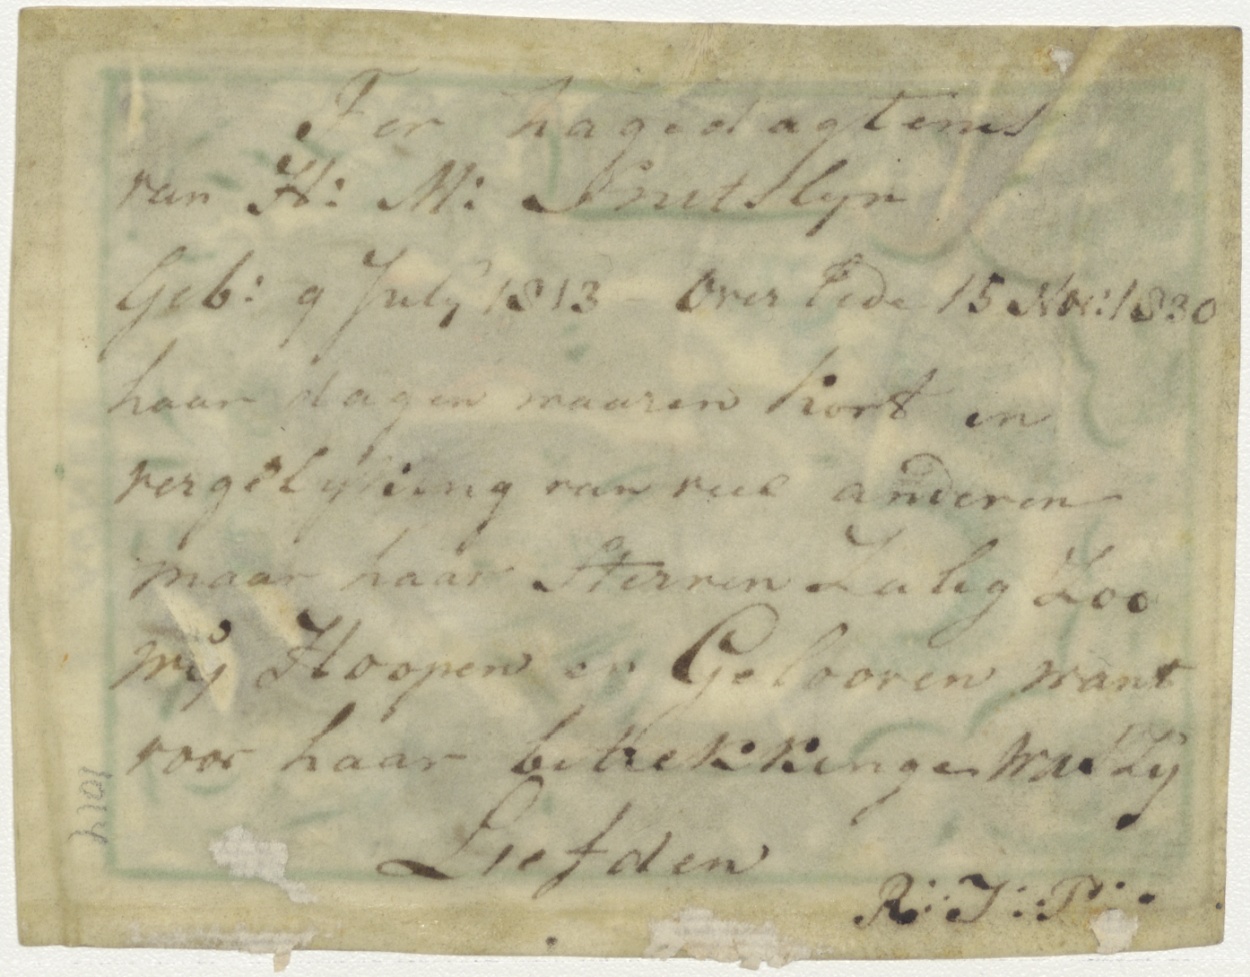 Ter hagedagtenis
van H: M: Snutslyn
Geb: 9 July 1813 Over lede 15 Nov: 1830
haar dagen waaren kort in
vergelyking van veel anderen
maar haar sterven Zalig Zoo
wij Hoopen en Gelooven want
voor haar betrekkingen was Zy
Liefden
R: I: P:
1014